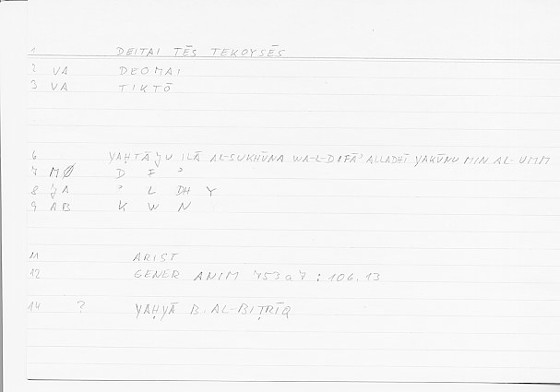 1 DEITAI TĒS TEKOYSĒS
2 VA DEOMAI
3 VA TIKTŌ
6 YAḤTĀJU ILĀ AL-SUKHŪNA WA-L-DIFĀʾ ALLADHĪ YAKŪNU MIN AL-UMM
7 MØ D F ʾ
8 JA ʾ L DH Y
9 AB K W N
11 ARIST
12 GENER ANIM 753a7 : 106.13
14 ? YAḤYĀ B. AL-BIṬRĪQ